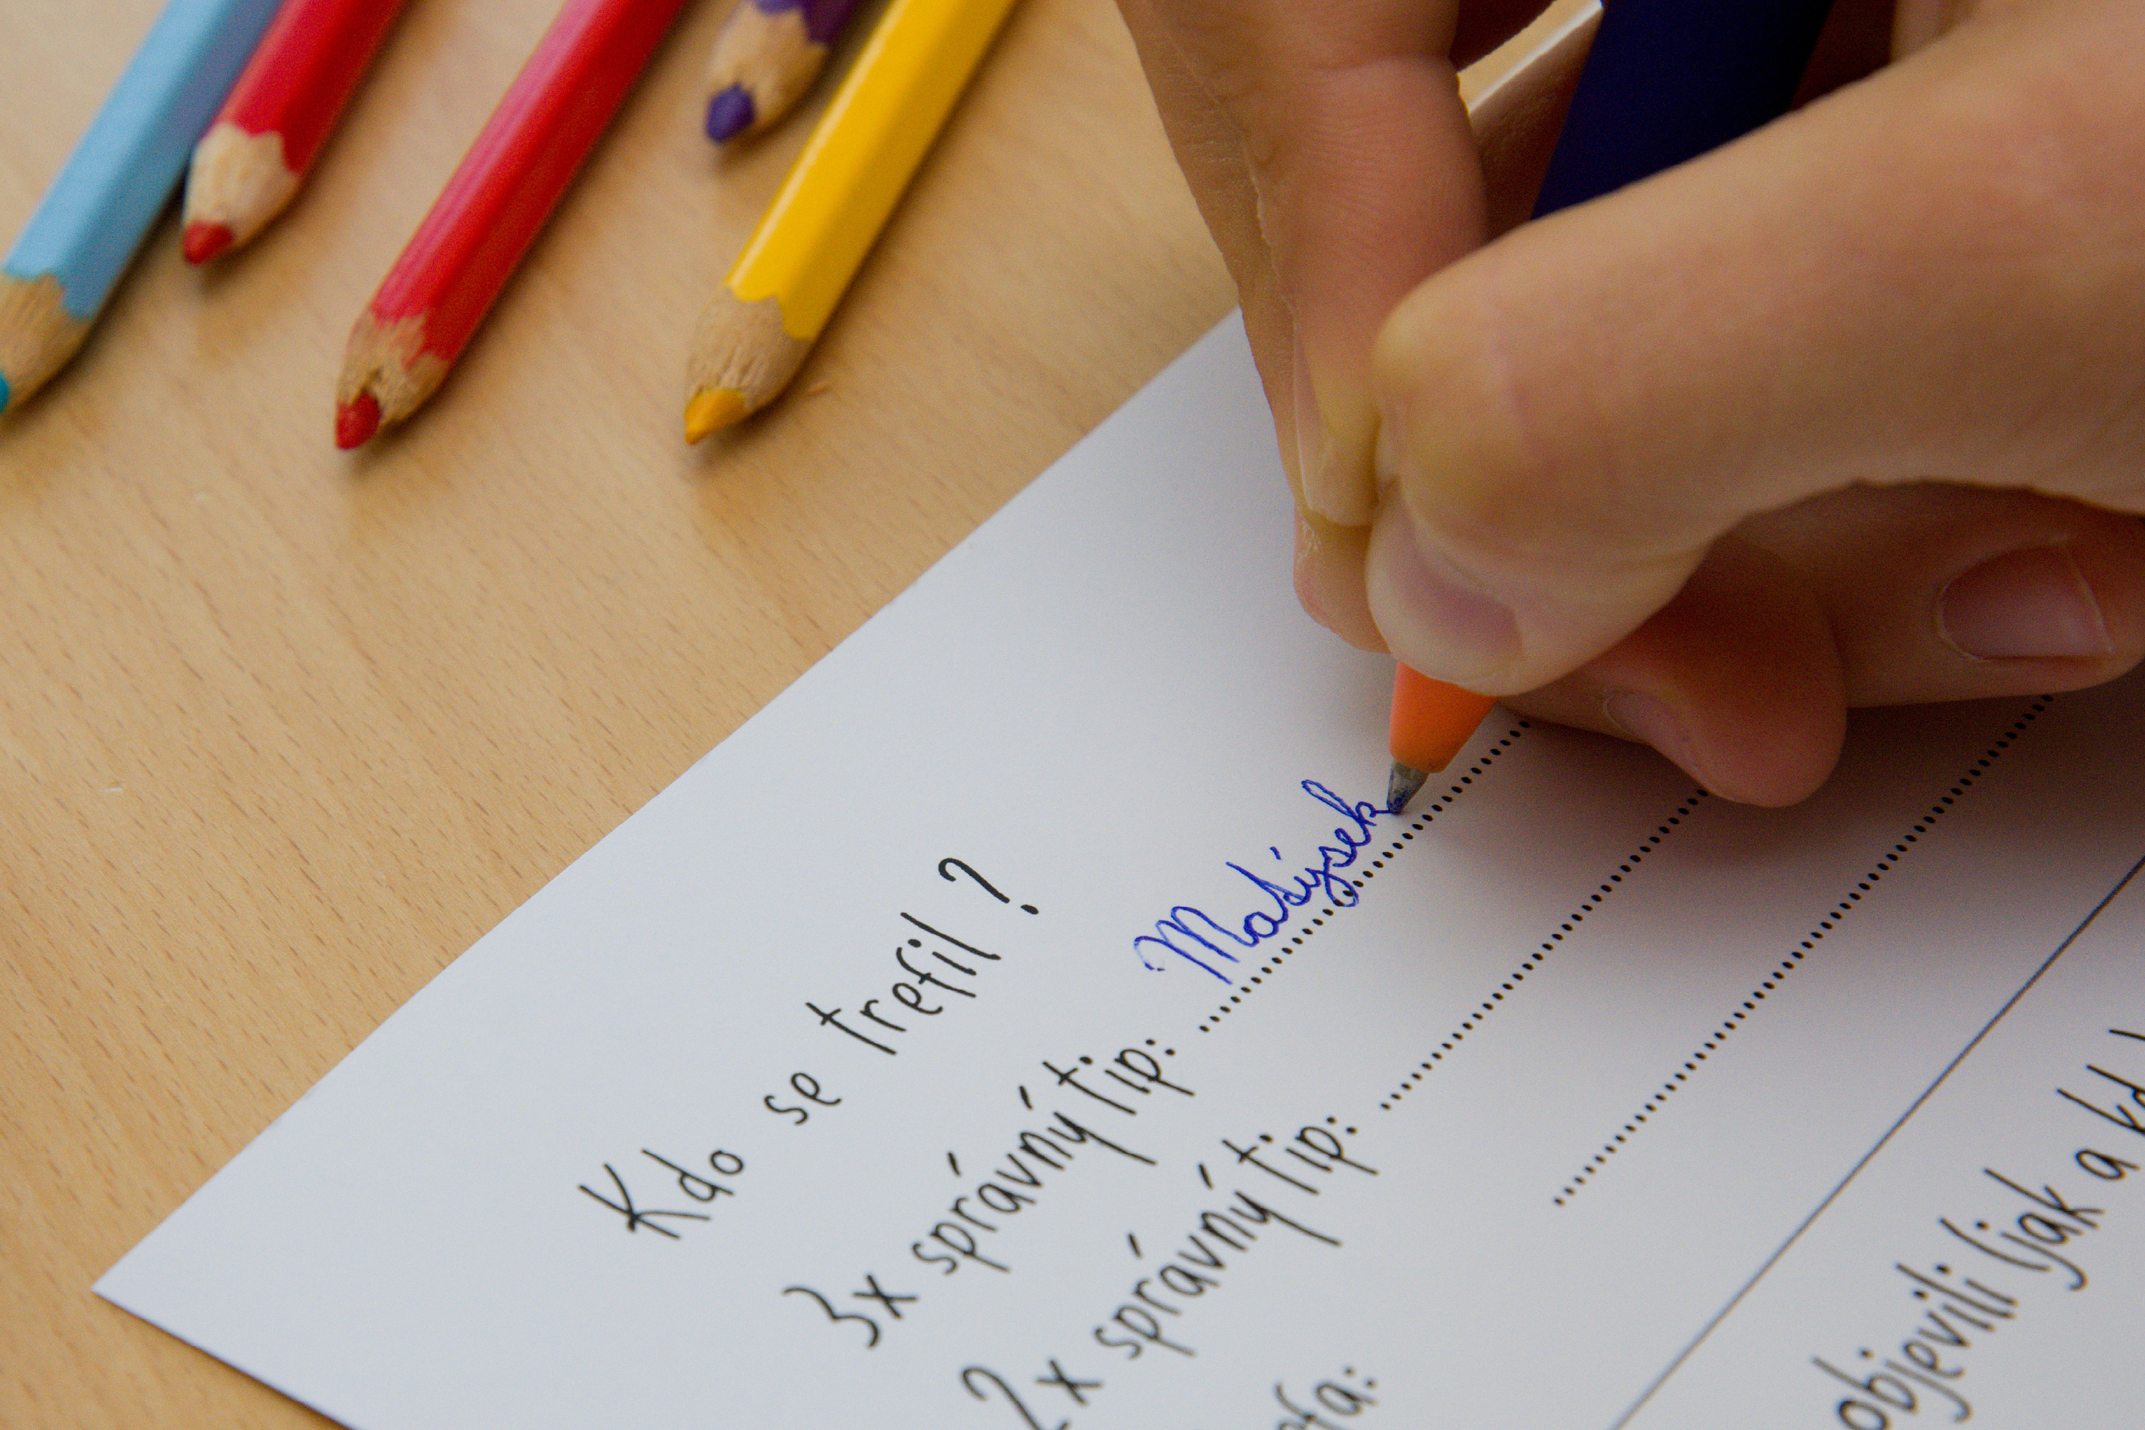 Kdo se trefil?
3x správný tip: Matýsek
2x správný tip:
objevili (jak a